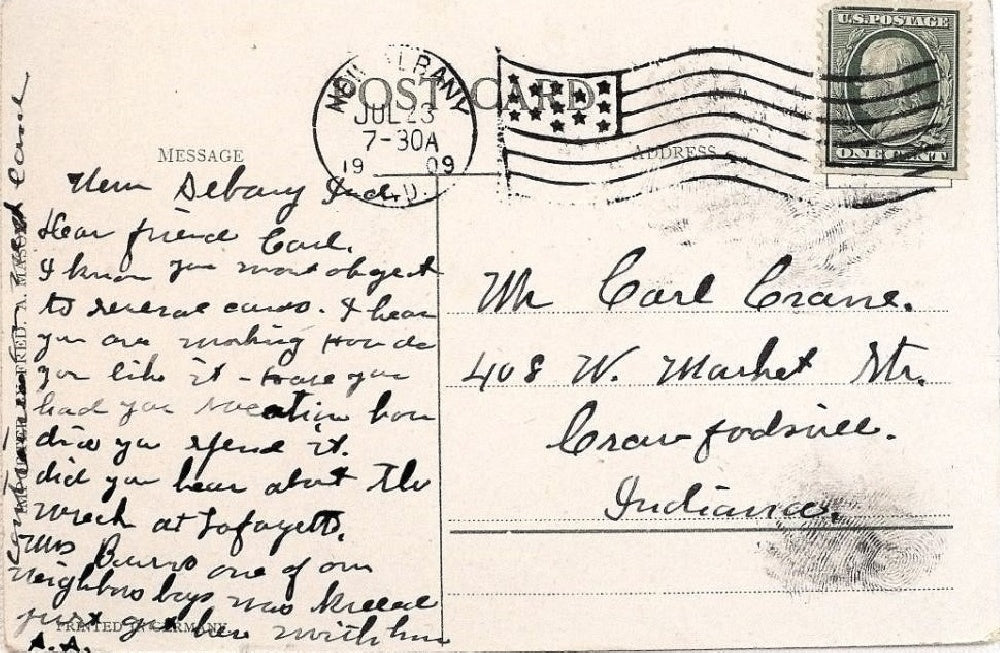 U.S. POSTAGE
ONE CENT
POST CARD
NEW ALBANY
JUL 23
7-30A
1909
IND.
MESSAGE
ADDRESS
New Albany Ind.
Dear friend Carl.
I know you wont object
to several cards. I hear
you are working How do
you like it - Have you
had your vacation how
did you spend it.
did you hear about the
wreck at Lafayette.
Mrs one of our
neighbors boys was killed
just got here with him
A.A.
card
Mr Carl Crane.
408 W. Market Str.
Crawfodsville.
Indiana.
PRINTED IN GERMANY